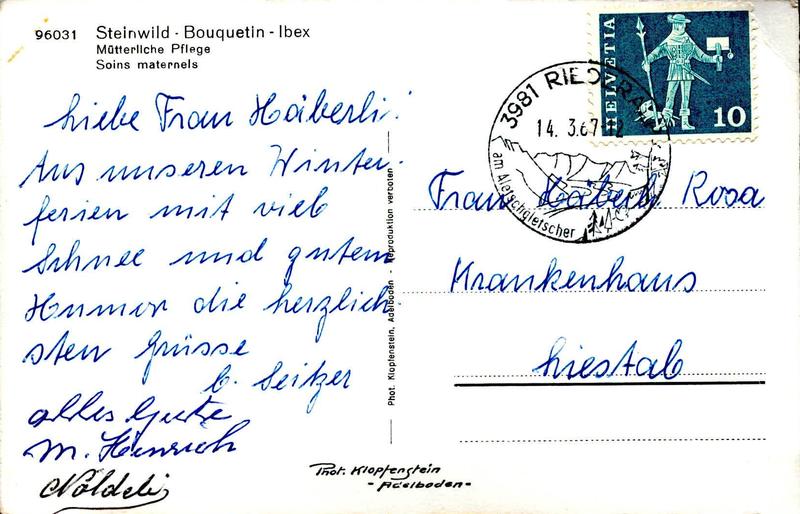 96031 Steinwild - Bouquetin - Ibex
Mütterliche Pflege
Soins maternels
Liebe Frau Häberli!
Aus unseren Winter-
ferien mit viel
Schnee und gutem
Humor die herzlich
sten Grüsse
b. Seitzer
alles Gute
M. Heinrich
Phot. Klopfenstein, Adelboden - Reproduktion verboten
Phot. Klopfenstein
- Adelboden -
HELVETIA
10
3981 RIED
14. 3.67-12
am Aletschgletscher
Frau Häberli Rosa
Krankenhaus
Liestal